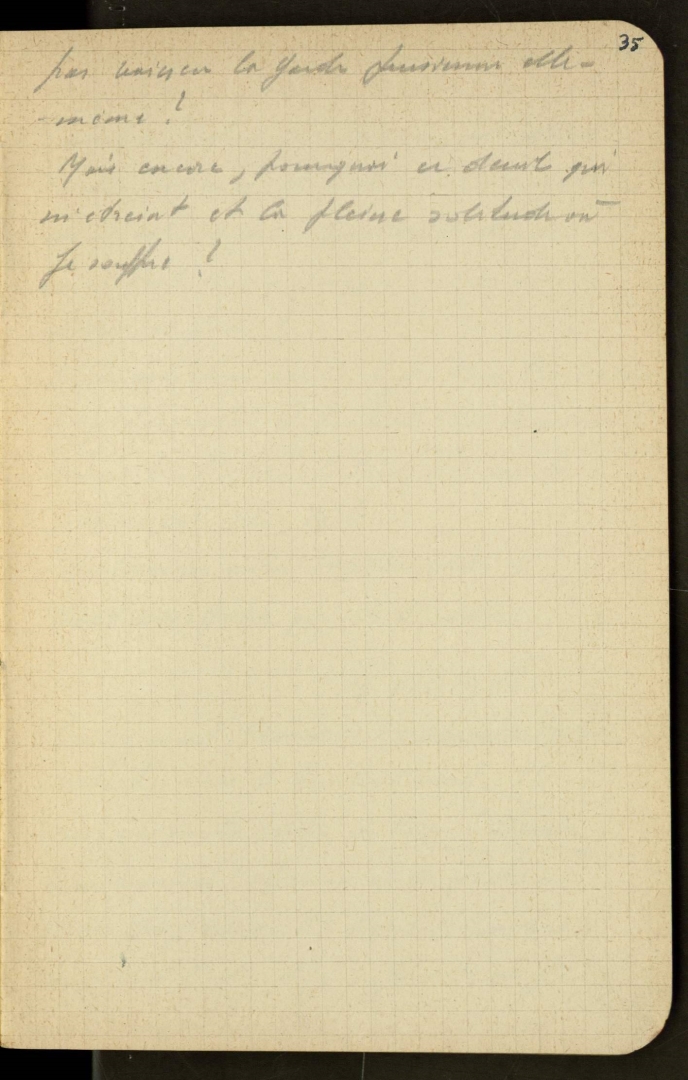 35
pas vaincu la Garde prussienne elle-
-même ?
Mais encore, pourquoi ce deuil qui
m'étreint et la pleine solitude où
je souffre ?